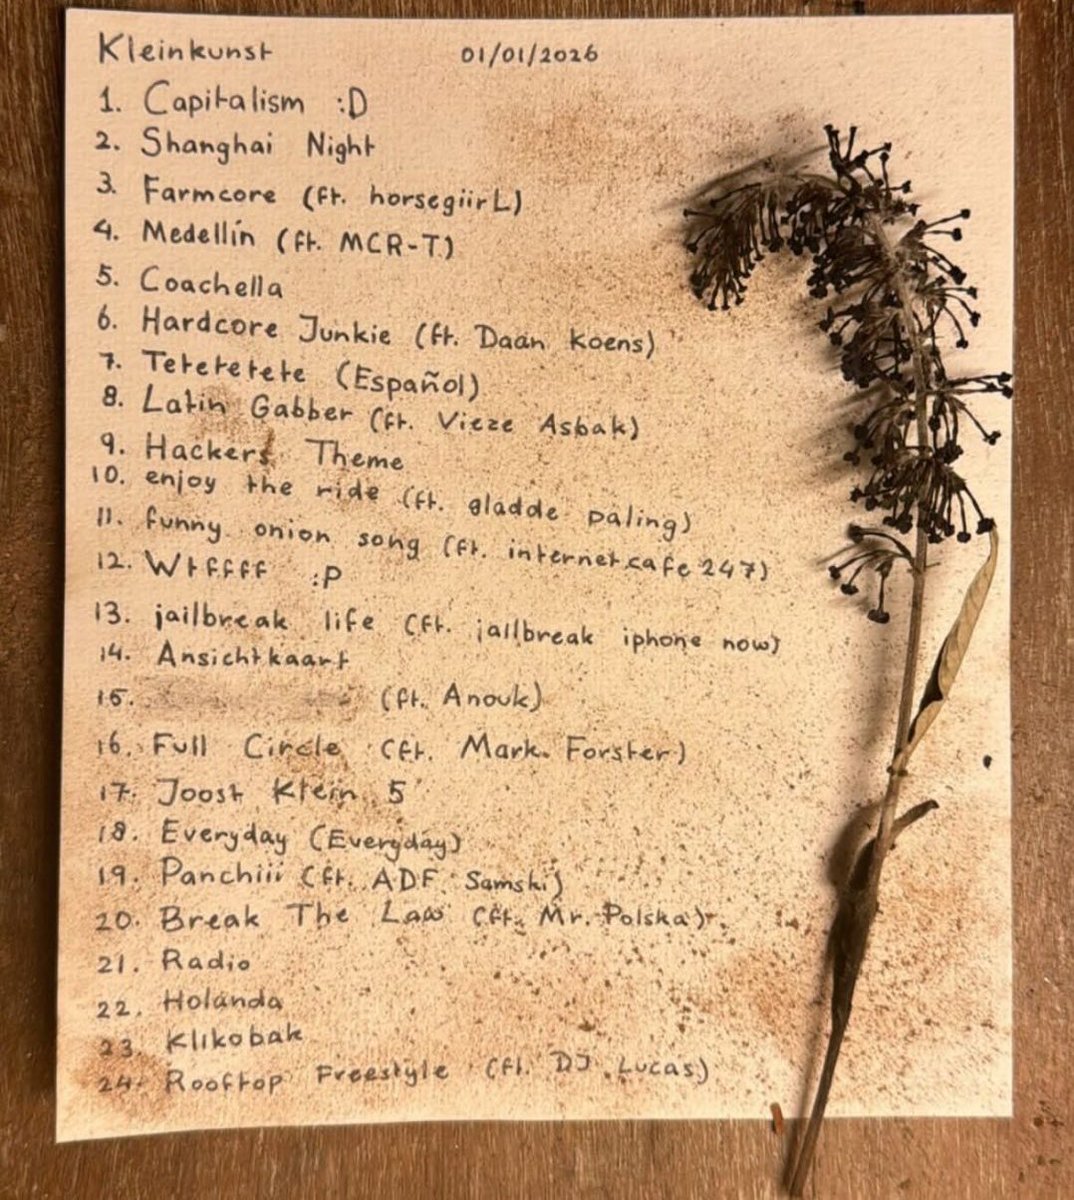 Kleinkunst 01/01/2026
1. Capitalism :D
2. Shanghai Night
3. Farmcore (ft. horsegiirL)
4. Medellín (ft. MCR-T)
5. Coachella
6. Hardcore Junkie (ft. Daan Koens)
7. Tetetetete (Español)
8. Latin Gabber (ft. Vieze Asbak)
9. Hackers Theme
10. enjoy the ride (ft. gladde paling)
11. funny onion song (ft. internetcafe247)
12. Wtffff :P
13. jailbreak life (ft. jailbreak iphone now)
14. Ansichtkaart
15. (ft. Anouk)
16. Full Circle (ft. Mark Forster)
17. Joost Klein 5
18. Everyday (Everyday)
19. Panchiii (ft. ADF Samski)
20. Break The Law (ft. Mr. Polska)
21. Radio
22. Holanda
23 Klikobak
24. Rooftop Freestyle (ft. DJ Lucas)